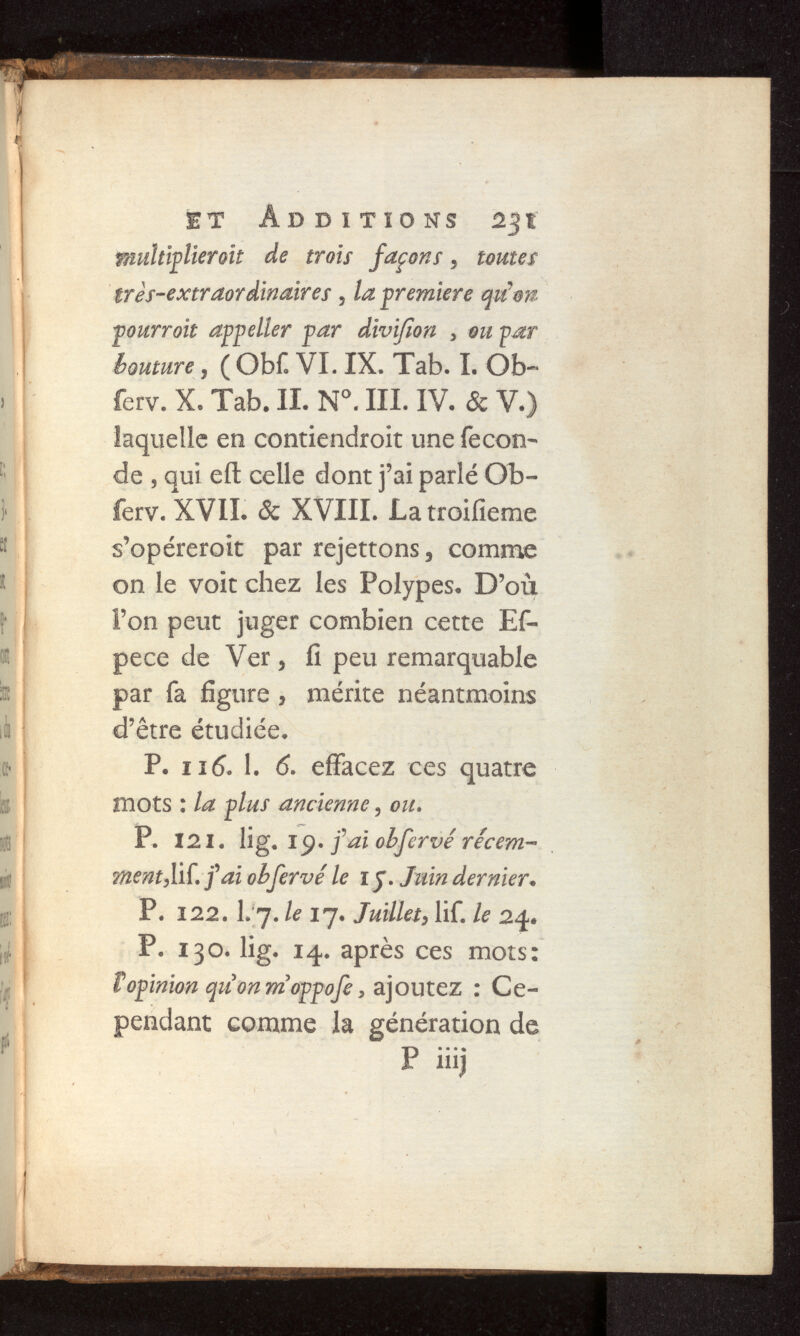 ET ADDITIONS 231
multiplieroit de trois façons, toutes
très-extraordinaires, la premiere qu'on
pourroit appeller par diviſion, ou par
bouture, (Obſ. VI. IX. Tab. I. Ob-
ſerv. X. Tab. II. N°. III. IV. & V.)
laquelle en contiendroit une ſecon-
de, qui eſt celle dont j'ai parlé Ob-
ſerv. XVII. & XVIII. La troiſieme
s'opéreroit par rejettons, comme
on le voit chez les Polypes. D'où
l'on peut juger combien cette Eſ-
pece de Ver, ſi peu remarquable
par ſa figure, mérite néantmoins
d'être étudiée.
P. 116. l. 6. effacez ces quatre
mots : la plus ancienne, ou.
P. 121. lig. 19. j'ai obſervé récem-
ment, liſ. j'ai obſervé le 15. Juin dernier.
P. 122. l. 7. le 17. Juillet, liſ. le 24.
P. 130. lig. 14. après ces mots:
l'opinion qu'on m'oppoſe, ajoutez : Ce-
pendant comme la génération de
P iiij